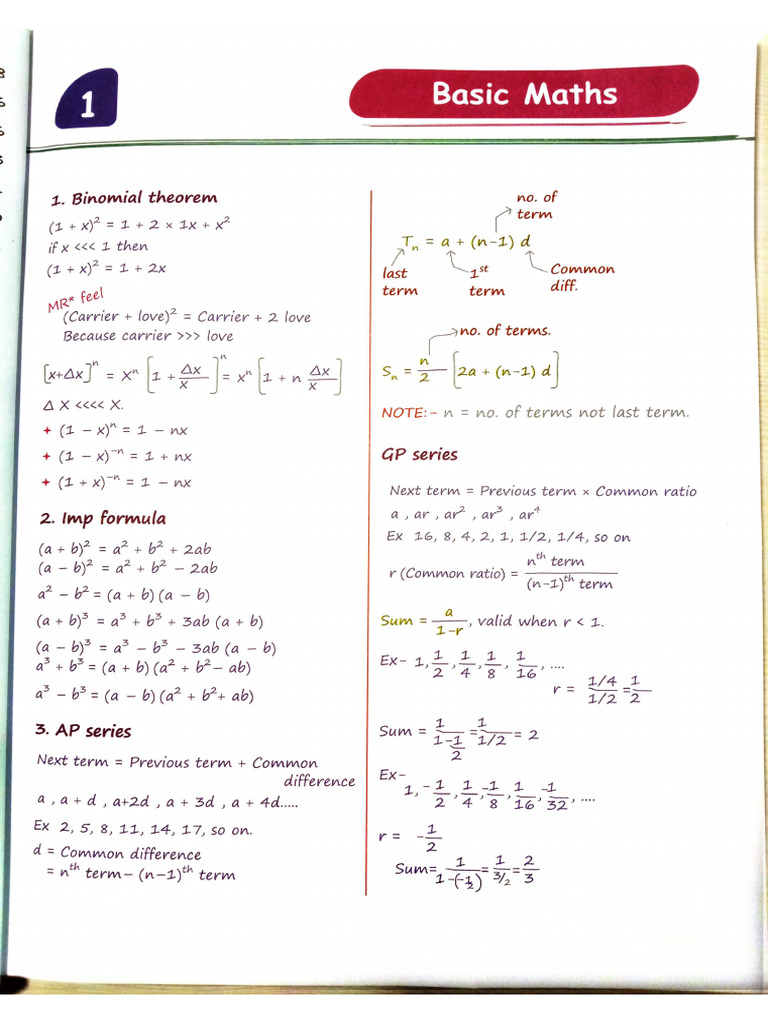 1
Basic Maths
1. Binomial theorem
(1 + x)² = 1 + 2 × 1x + x²
if x <<< 1 then
(1 + x)² = 1 + 2x
MR* feel
(Carrier + love)² = Carrier + 2 love
Because carrier >>> love
[x+Δx]ⁿ = Xⁿ [1 + Δx/x]ⁿ = xⁿ [1 + n Δx/x]
Δ X <<<< X.
+ (1 − x)ⁿ = 1 − nx
+ (1 − x)⁻ⁿ = 1 + nx
+ (1 + x)⁻ⁿ = 1 − nx
2. Imp formula
(a + b)² = a² + b² + 2ab
(a − b)² = a² + b² − 2ab
a² − b² = (a + b) (a − b)
(a + b)³ = a³ + b³ + 3ab (a + b)
(a − b)³ = a³ − b³ − 3ab (a − b)
a³ + b³ = (a + b) (a² + b² − ab)
a³ − b³ = (a − b) (a² + b² + ab)
3. AP series
Next term = Previous term + Common
difference
a , a + d , a+2d , a + 3d , a + 4d.....
Ex 2, 5, 8, 11, 14, 17, so on.
d = Common difference
= nᵗʰ term− (n−1)ᵗʰ term
no. of
term
Tₙ = a + (n−1) d
last
term
1ˢᵗ
term
Common
diff.
no. of terms.
Sₙ = n/2 [2a + (n−1) d]
NOTE:- n = no. of terms not last term.
GP series
Next term = Previous term × Common ratio
a , ar , ar² , ar³ , ar⁴
Ex 16, 8, 4, 2, 1, 1/2, 1/4, so on
r (Common ratio) = nᵗʰ term / (n−1)ᵗʰ term
Sum = a/1−r , valid when r < 1.
Ex- 1, 1/2 , 1/4 , 1/8 , 1/16 , ....
r = 1/4 / 1/2 = 1/2
Sum = 1/(1−1/2) = 1/1/2 = 2
Ex-
1, -1/2 , 1/4 , -1/8 , 1/16 , -1/32 , ....
r = -1/2
Sum= 1/1−(−1/2) = 1/3/2 = 2/3